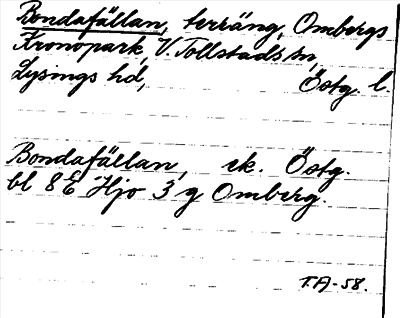 Bondafällan, terräng, Ombergs
Kronopark, V. Tollstads sn,
Lysings hd, Östg. l.
Bondafällan, ek. Östg.
bl 8E Hjo 3 g Omberg.
T.A-58.